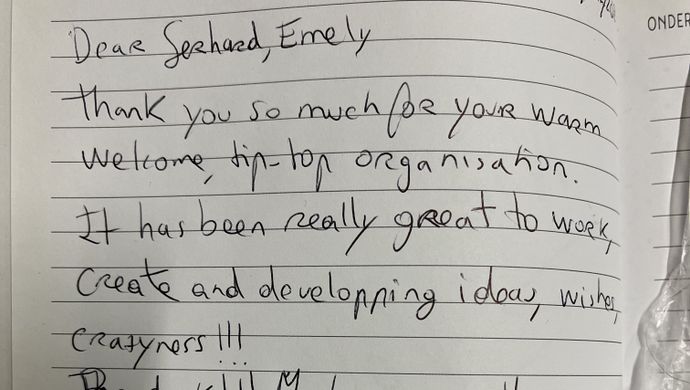 ONDER
Dear Gerhard, Emely
Thank you so much for your warm
Welcome, tip-top organisation.
It has been really great to work,
Create and developping ideas, wishes,
crazyness!!!